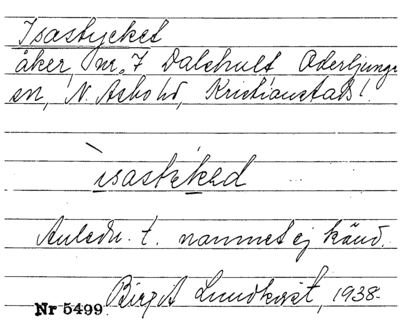 Isastycket
åker, nr 7 Dalshult Örkeljunga
sn, N. Åsbo hd, Kristianstads l.
ìsastekəd
Anledn. t. namnet ej känd.
Birgit Lundkvist, 1938.
Nr 5499